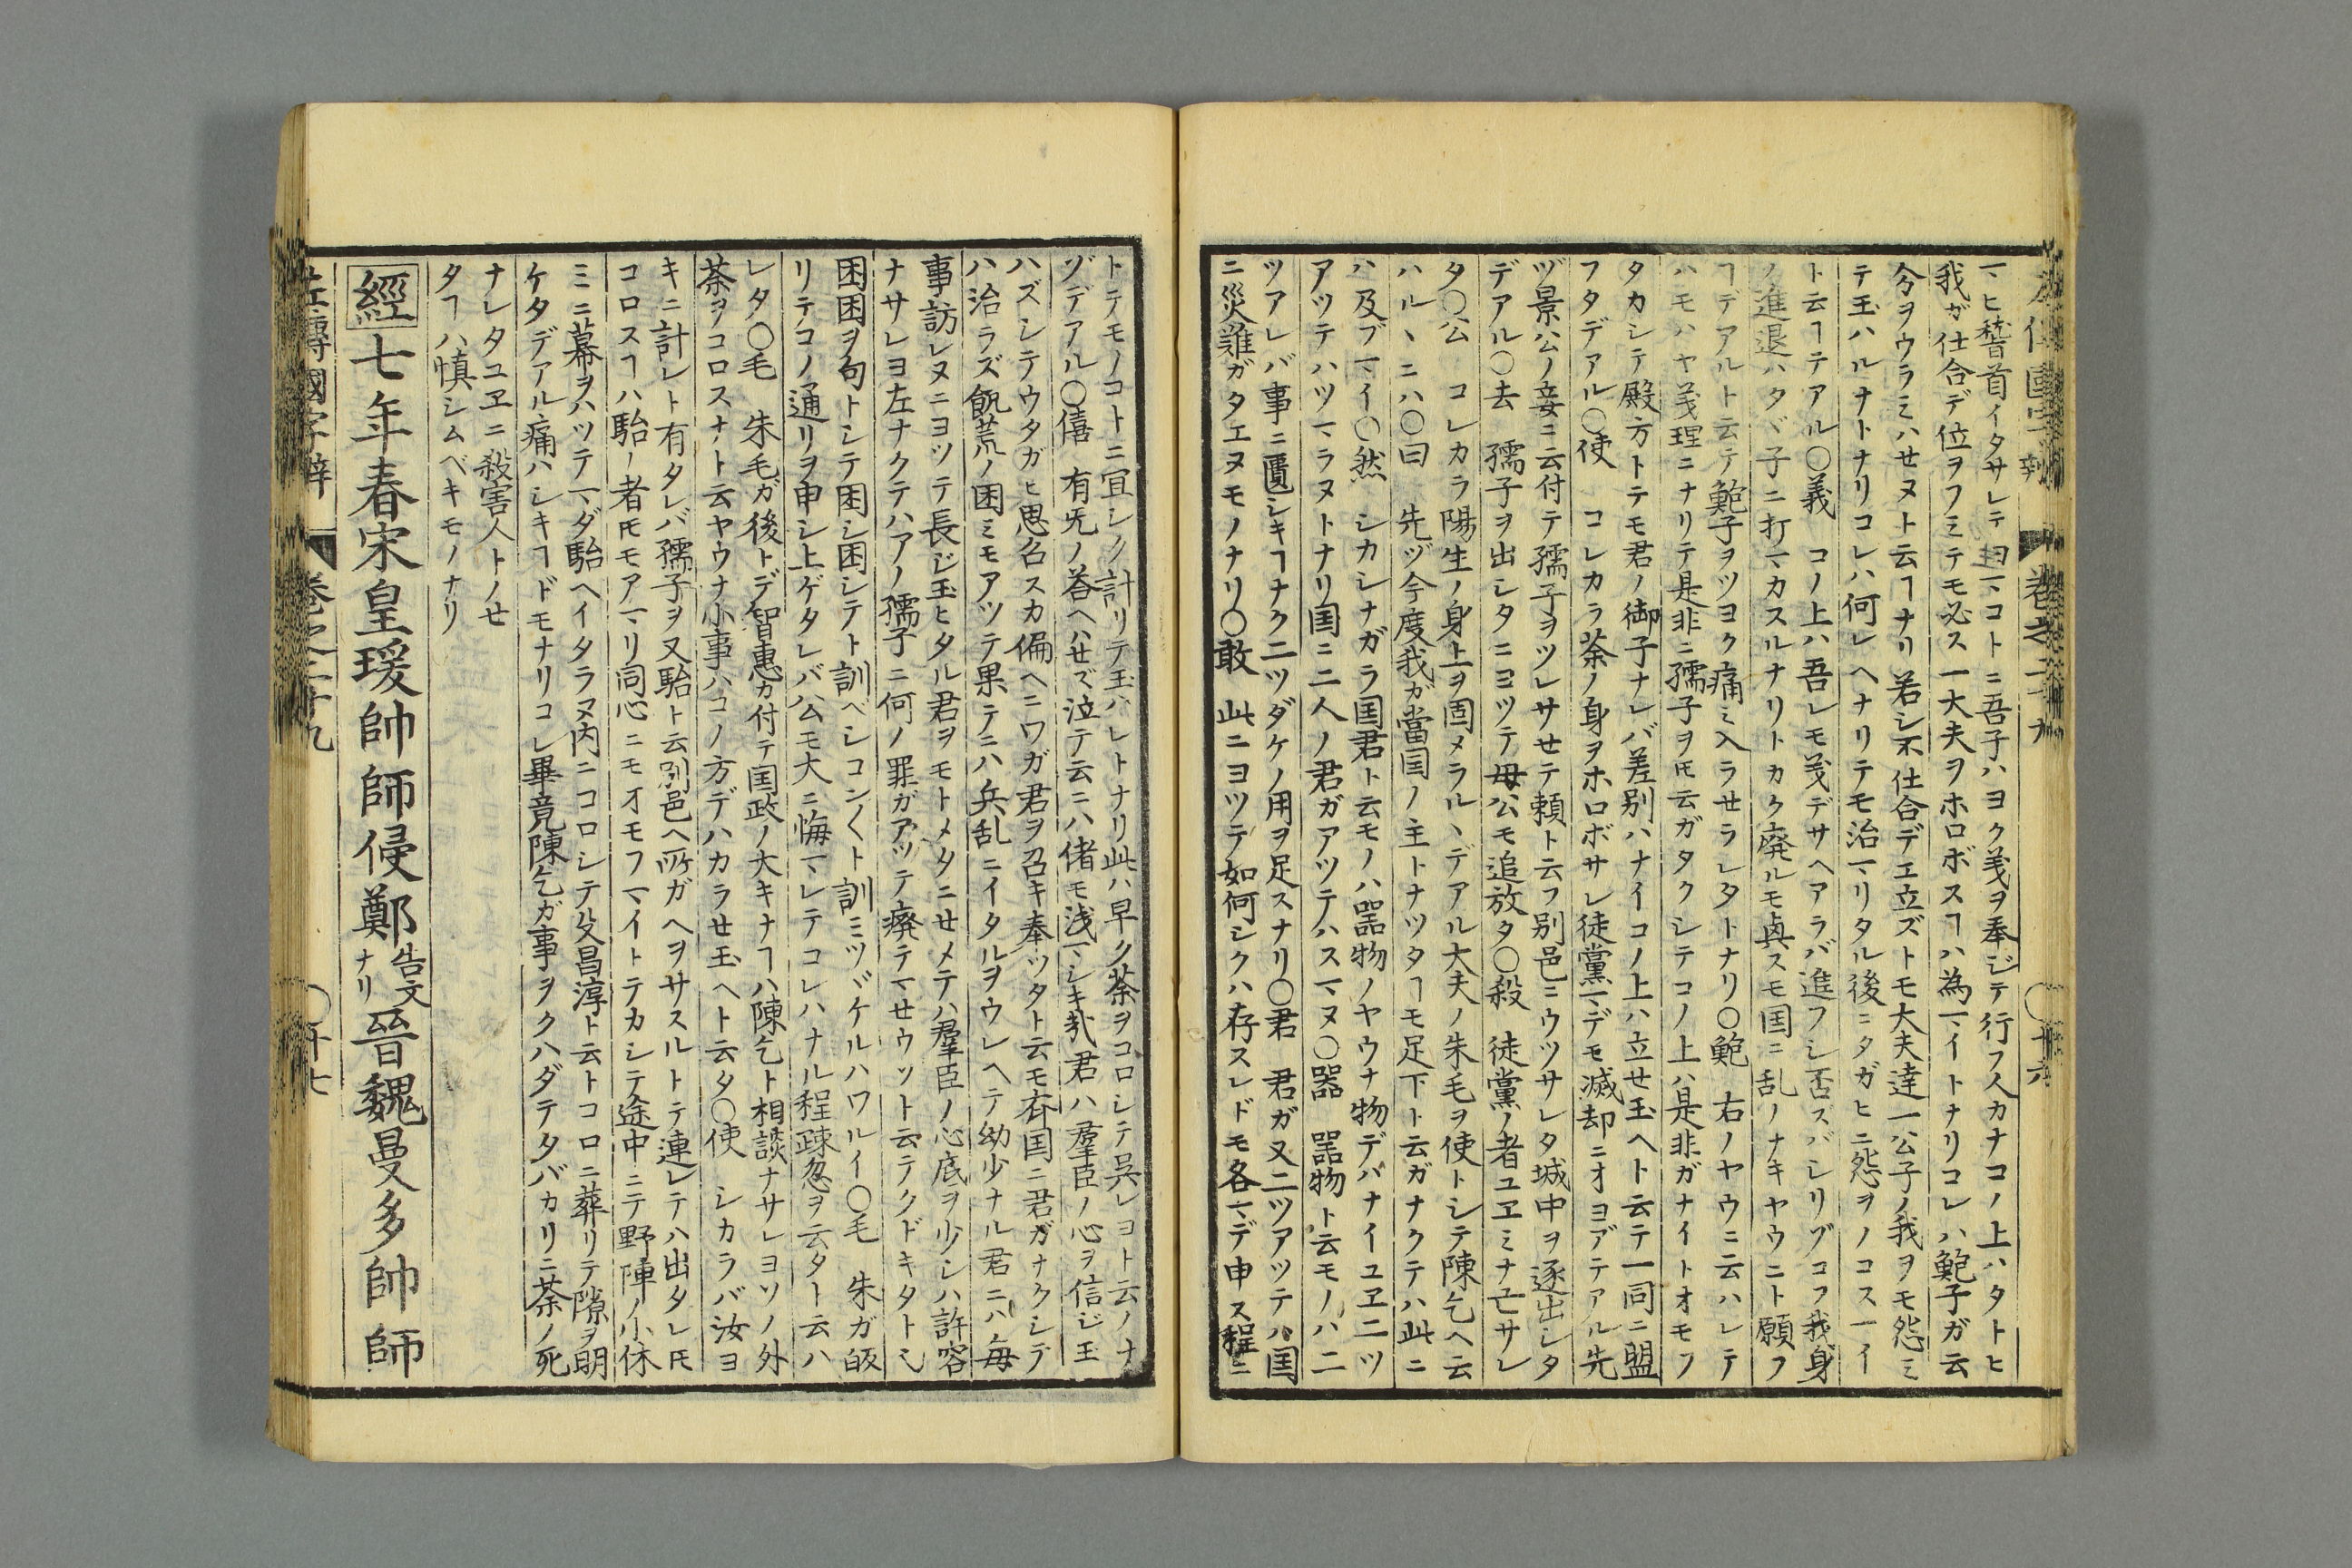 マヒ稽首イタサレテ曰マコトニ吾子ハヨク義ヲ奉ジテ行フ人カナコノ上ハタトヒ
我ガ仕合デ位ヲフミテモ必ス一大夫ヲホロボスヿハ為マイトナリコレハ鮑子ガ云
今ヲウラミハせヌト云ヿナリ若シ不仕合デエ立ズトモ大夫達一公子ノ我ヲモ怨ミ
テ玉ハルナトナリコレハ何レヘナリテモ治マリタル後ニタガヒニ怨ヲノコスマイ
ト云ヿテアル〇義 コノ上ハ吾レモ義デサヘアラバ進フシ否スバシリゾコフ我身
ノ進退ハタヾ子ニ打マカスルナリトカク廃ルモ興スモ国ニ乱ノナキヤウニト願フ
ヿデアルト云テ鮑子ヲツヨク痛ミ入ラせラレタトナリ〇鮑 右ノヤウニ云ハレテ
ハモハヤ義理ニナリテ是非ニ孺子ヲ𪜈云ガタクシテコノ上ハ是非ガナイトオモフ
タカシテ殿方トテモ君ノ御子ナレバ差別ハナイコノ上ハ立せ玉ヘト云テ一同ニ盟
フタデアル〇使 コレカラ荼ノ身ヲホロボサレ徒黨マデモ滅却ニオヨブテアル先
ヅ景公ノ妾ニ云付テ孺子ヲツレサせテ頼ト云フ別邑ニウツサレタ城中ヲ逐出シタ
デアル〇去 孺子ヲ出シタニヨツテ母公モ追放タ〇殺 徒黨ノ者ユヱミナ亡サレ
タ〇公 コレカラ陽生ノ身上ヲ固メラルヽデアル大夫ノ朱毛ヲ使トシテ陳乞ヘ云
ハルヽニハ〇曰 先ヅ今度我ガ當国ノ主トナツタヿモ足下ト云ガナクテハ此ニ
ハ及ブマイ〇然 シカシナガラ国君ト云モノハ噐物ノヤウナ物デハナイユヱ二ツ
アツテハツマラヌトナリ国ニ二人ノ君ガアツテハスマヌ〇噐 噐物ト云モノハ二
ツアレバ事ニ匱シキヿナク二ツダケノ用ヲ足スナリ〇君 君ガ又二ツアツテハ国
ニ災難ガタエヌモノナリ〇敢 此ニヨツテ如何シクハ存スレドモ各マデ申ス程ニ
トテモノコトニ宜シク計リテ玉ハレトナリ此ハ早ク荼ヲコロシテ呉レヨト云ノナ
ヅデアル〇僖 有旡ノ荅ヘハせズ泣テ云ニハ偖モ浅マシキ㢤君ハ羣臣ノ心ヲ信ジ玉
ハズシテウタガヒ思召スカ偏ヘニワガ君ヲ召キ奉ツタト云モ斉国ニ君ガナクシテ
ハ治ラズ飢荒ノ困ミモアツテ果テニハ兵乱ニイタルヲウレヘテ幼少ナル君ニハ毎
事訪レヌニヨツテ長ジ玉ヒタル君ヲモトメタニせメテハ羣臣ノ心底ヲ少シハ許容
ナサレヨ左ナクテハアノ孺子ニ何ノ罪ガアツテ癈テマせウゾト云テクドキタトシ
困困ヲ句トシテ困シ困シテト訓ベシコン〱ト訓ミツヾケルハワルイ〇毛 朱ガ皈
リテコノ通リヲ申シ上ゲタレバ公モ大ニ悔マレテコレハナル程疎忽ヲ云ターハ
レタ〇毛 朱毛ガ後トデ智惠カ付テ国政ノ大キナヿハ陳乞ト相談ナサレヨソノ外
荼ヲコロスナト云ヤウナ小事ハコノ方デハカラせ玉ヘト云タ〇使 シカラバ汝ヨ
キニ計レト有タレバ孺子ヲ又駘ト云別邑ヘ所ガヘヲサスルトテ連レテハ出タレ𪜈
コロスヿハ駘ノ者𪜈モアマリ同心ニモオモフマイトテカシテ途中ニテ野陣ノ小休
ミニ幕ヲハツテマダ駘ヘイタラヌ内ニコロシテ殳冒淳ト云トコロニ葬リテ隙ヲ明
ケタデアル痛ハシキヿドモナリコレ畢竟陳乞ガ事ヲクハダテタバカリニ荼ノ死
ナレタユヱニ殺害人トノせ
タヿハ慎シムベキモノナリ
經 七年春宋皇瑗帥師侵鄭 告文ナリ 晉魏曼多帥師
左傳國字辯 卷之二十九